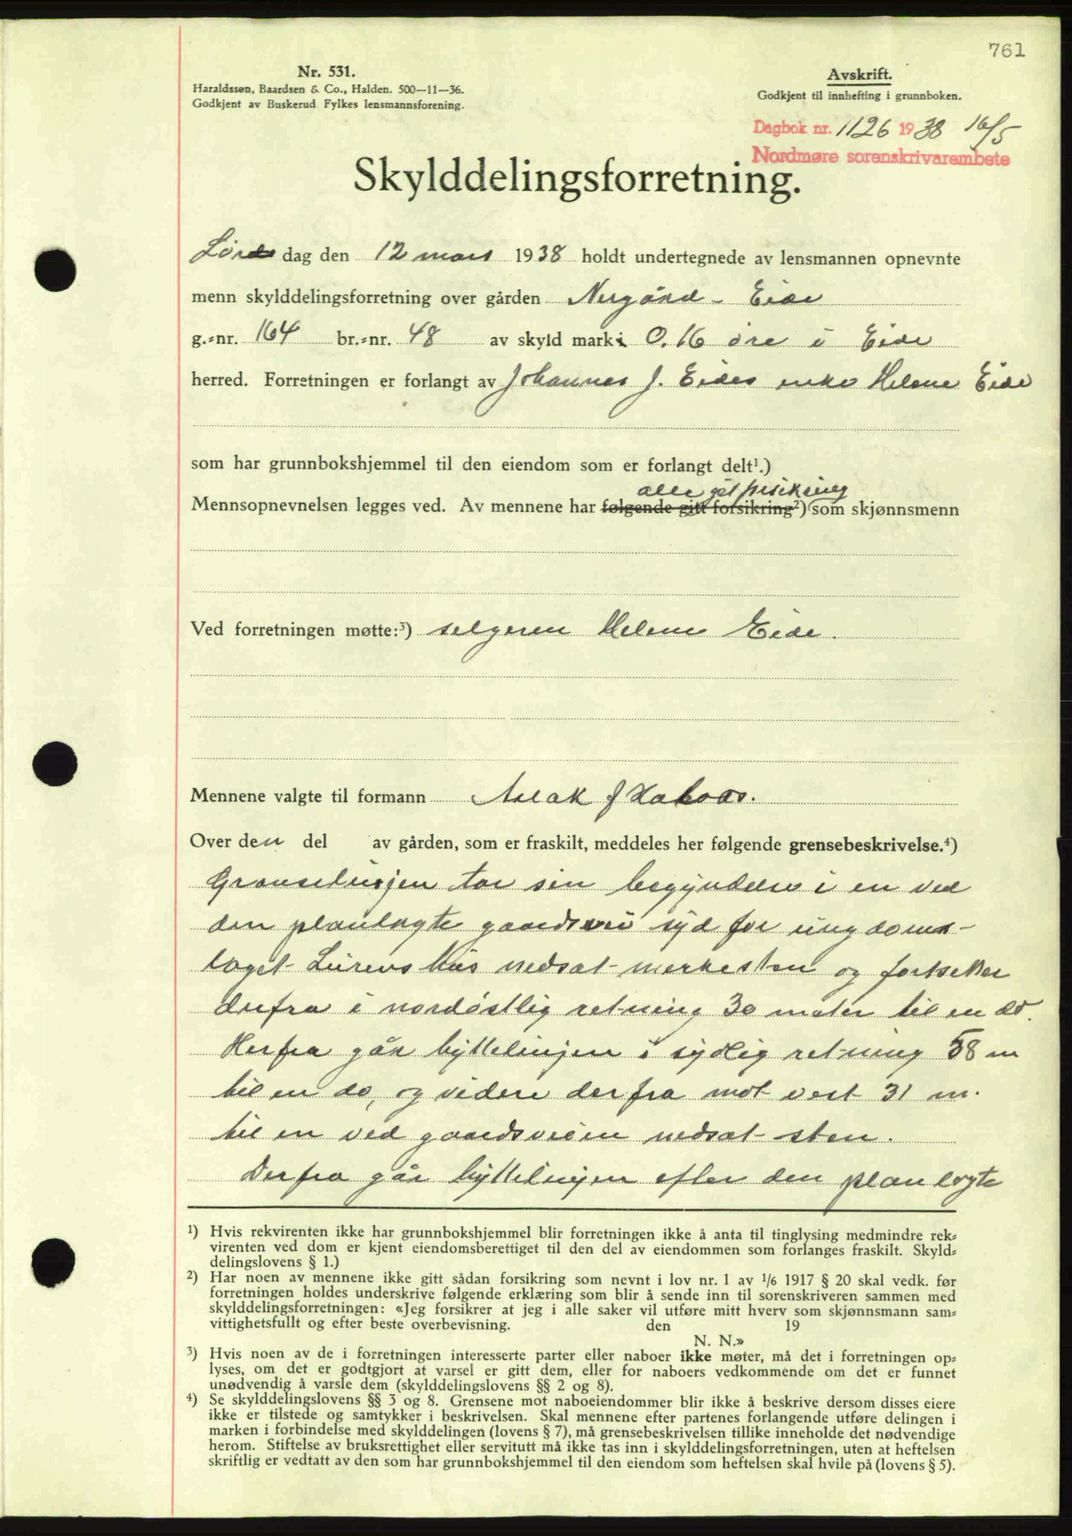 761
Nr. 531.
Haraldssøn, Baardsen & Co., Halden. 500—11—36.
Godkjent av Buskerud Fylkes lensmannsforening.
Avskrift.
Godkjent til innhefting i grunnboken.
Dagbok nr. 1126 1938 16/5
Nordmøre sorenskrivarembete
Skylddelingsforretning.
Lørdag den 12 mars 1938 holdt undertegnede av lensmannen opnevnte
menn skylddelingsforretning over gården Nergård - Eide
g.-nr. 164 br.-nr. 48 av skyld mark 0.16 øre i Eide
herred. Forretningen er forlangt av Johannes J. Eides enke Helene Eide
som har grunnbokshjemmel til den eiendom som er forlangt delt¹.)
alle git forsikring
Mennsopnevnelsen legges ved. Av mennene har følgende gitt forsikring²) som skjønnsmenn
Ved forretningen møtte:³) selgeren Helene Eide.
Mennene valgte til formann Aslak J
Over den del av gården, som er fraskilt, meddeles her følgende grensebeskrivelse.⁴)
Grenselinjen tar sin begyndelse i en ved
den planlagte gaardsvei syd for ungdoms-
laget Lurens hus nedsat merkesten og fortsetter
derfra i nordöstlig retning 30 meter til en do.
Herfra går byttelinjen i sydlig retning 58 m
til en do, og videre derfra mot vest 31 m.
til en ved gaardsveien nedsat sten.
Derfra går byttelinjen efter den planlagte
¹) Hvis rekvirenten ikke har grunnbokshjemmel blir forretningen ikke å anta til tinglysing medmindre rek-
virenten ved dom er kjent eiendomsberettiget til den del av eiendommen som forlanges fraskilt. Skyld-
delingslovens § 1.)
²) Har noen av mennene ikke gitt sådan forsikring som nevnt i lov nr. 1 av 1/6 1917 § 20 skal vedk. før
forretningen holdes underskrive følgende erklæring som blir å sende inn til sorenskriveren sammen med
skylddelingsforretningen: «Jeg forsikrer at jeg i alle saker vil utføre mitt hverv som skjønnsmann sam-
vittighetsfullt og efter beste overbevisning. den 19
N. N.»
³) Hvis noen av de i forretningen interesserte parter eller naboer ikke møter, må det i forretningen op-
lyses, om det er godtgjort at varsel er gitt dem, eller for naboers vedkommende om det er funnet
unødvendig å varsle dem (skylddelingslovens §§ 2 og 8).
⁴) Se skylddelingslovens §§ 3 og 8. Grensene mot naboeiendommer blir ikke å beskrive dersom disses eiere
ikke er tilstede og samtykker i beskrivelsen. Skal mennene efter partenes forlangende utføre delingen i
marken i forbindelse med skylddelingen (lovens § 7), må grensebeskrivelsen tillike inneholde det nødvendige
herom. Stiftelse av bruksrettighet eller servitutt må ikke tas inn i skylddelingsforretningen, uten at heftelsen
skriftlig er vedtatt av den som har grunnbokshjemmel til den eiendom som heftelsen skal hvile på (lovens § 5).